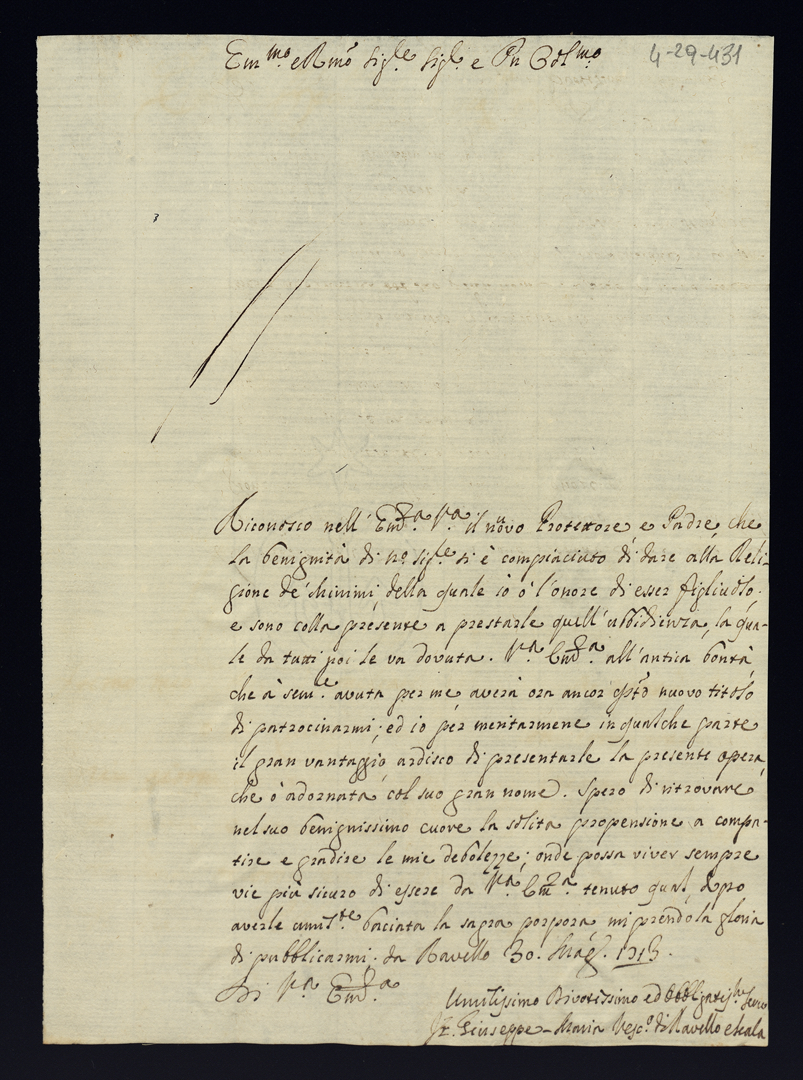 Em.mo e Rmõ Sig.re Sig.re e Pñ Col.mo
4-29-431
Riconosco nell' Em.za V.a il nuovo Protettore e Padre che
la benignità di N.o Sig.re si è compiaciuto di dare alla Reli-
gione de' Minimi della quale io ò l'onore di esser figliuolo.
e sono colla presente a prestarle quell'ubbidienza, la qua-
le da tutti noi le va dovuta. V.a Em.za all'antica bontà
che à sem.e avuta per me averà ora ancor q̃sto nuovo titolo
di patrocinarmi; ed io per meritarmene in qualche parte
il gran vantaggio ardisco di presentarle la presente opera
che ò adornata col suo gran nome. Spero di ritrovare
nel suo benignissimo cuore la solita propensione a compa-
tire e gradire le mie debolezze; onde possa viver sempre
vie più sicuro di essere da V.a Em.za tenuto qual, dopo
averle umil.te baciata la sagra porpora, mi prendo la gloria
di pubblicarmi. da Ravello 30. Mag. 1713.
Di V.a Em.za
Umilissimo Divotissimo ed Obbligatis.mo Serv
Fr. Giuseppe-Maria Vesc.o di Ravello e Scala